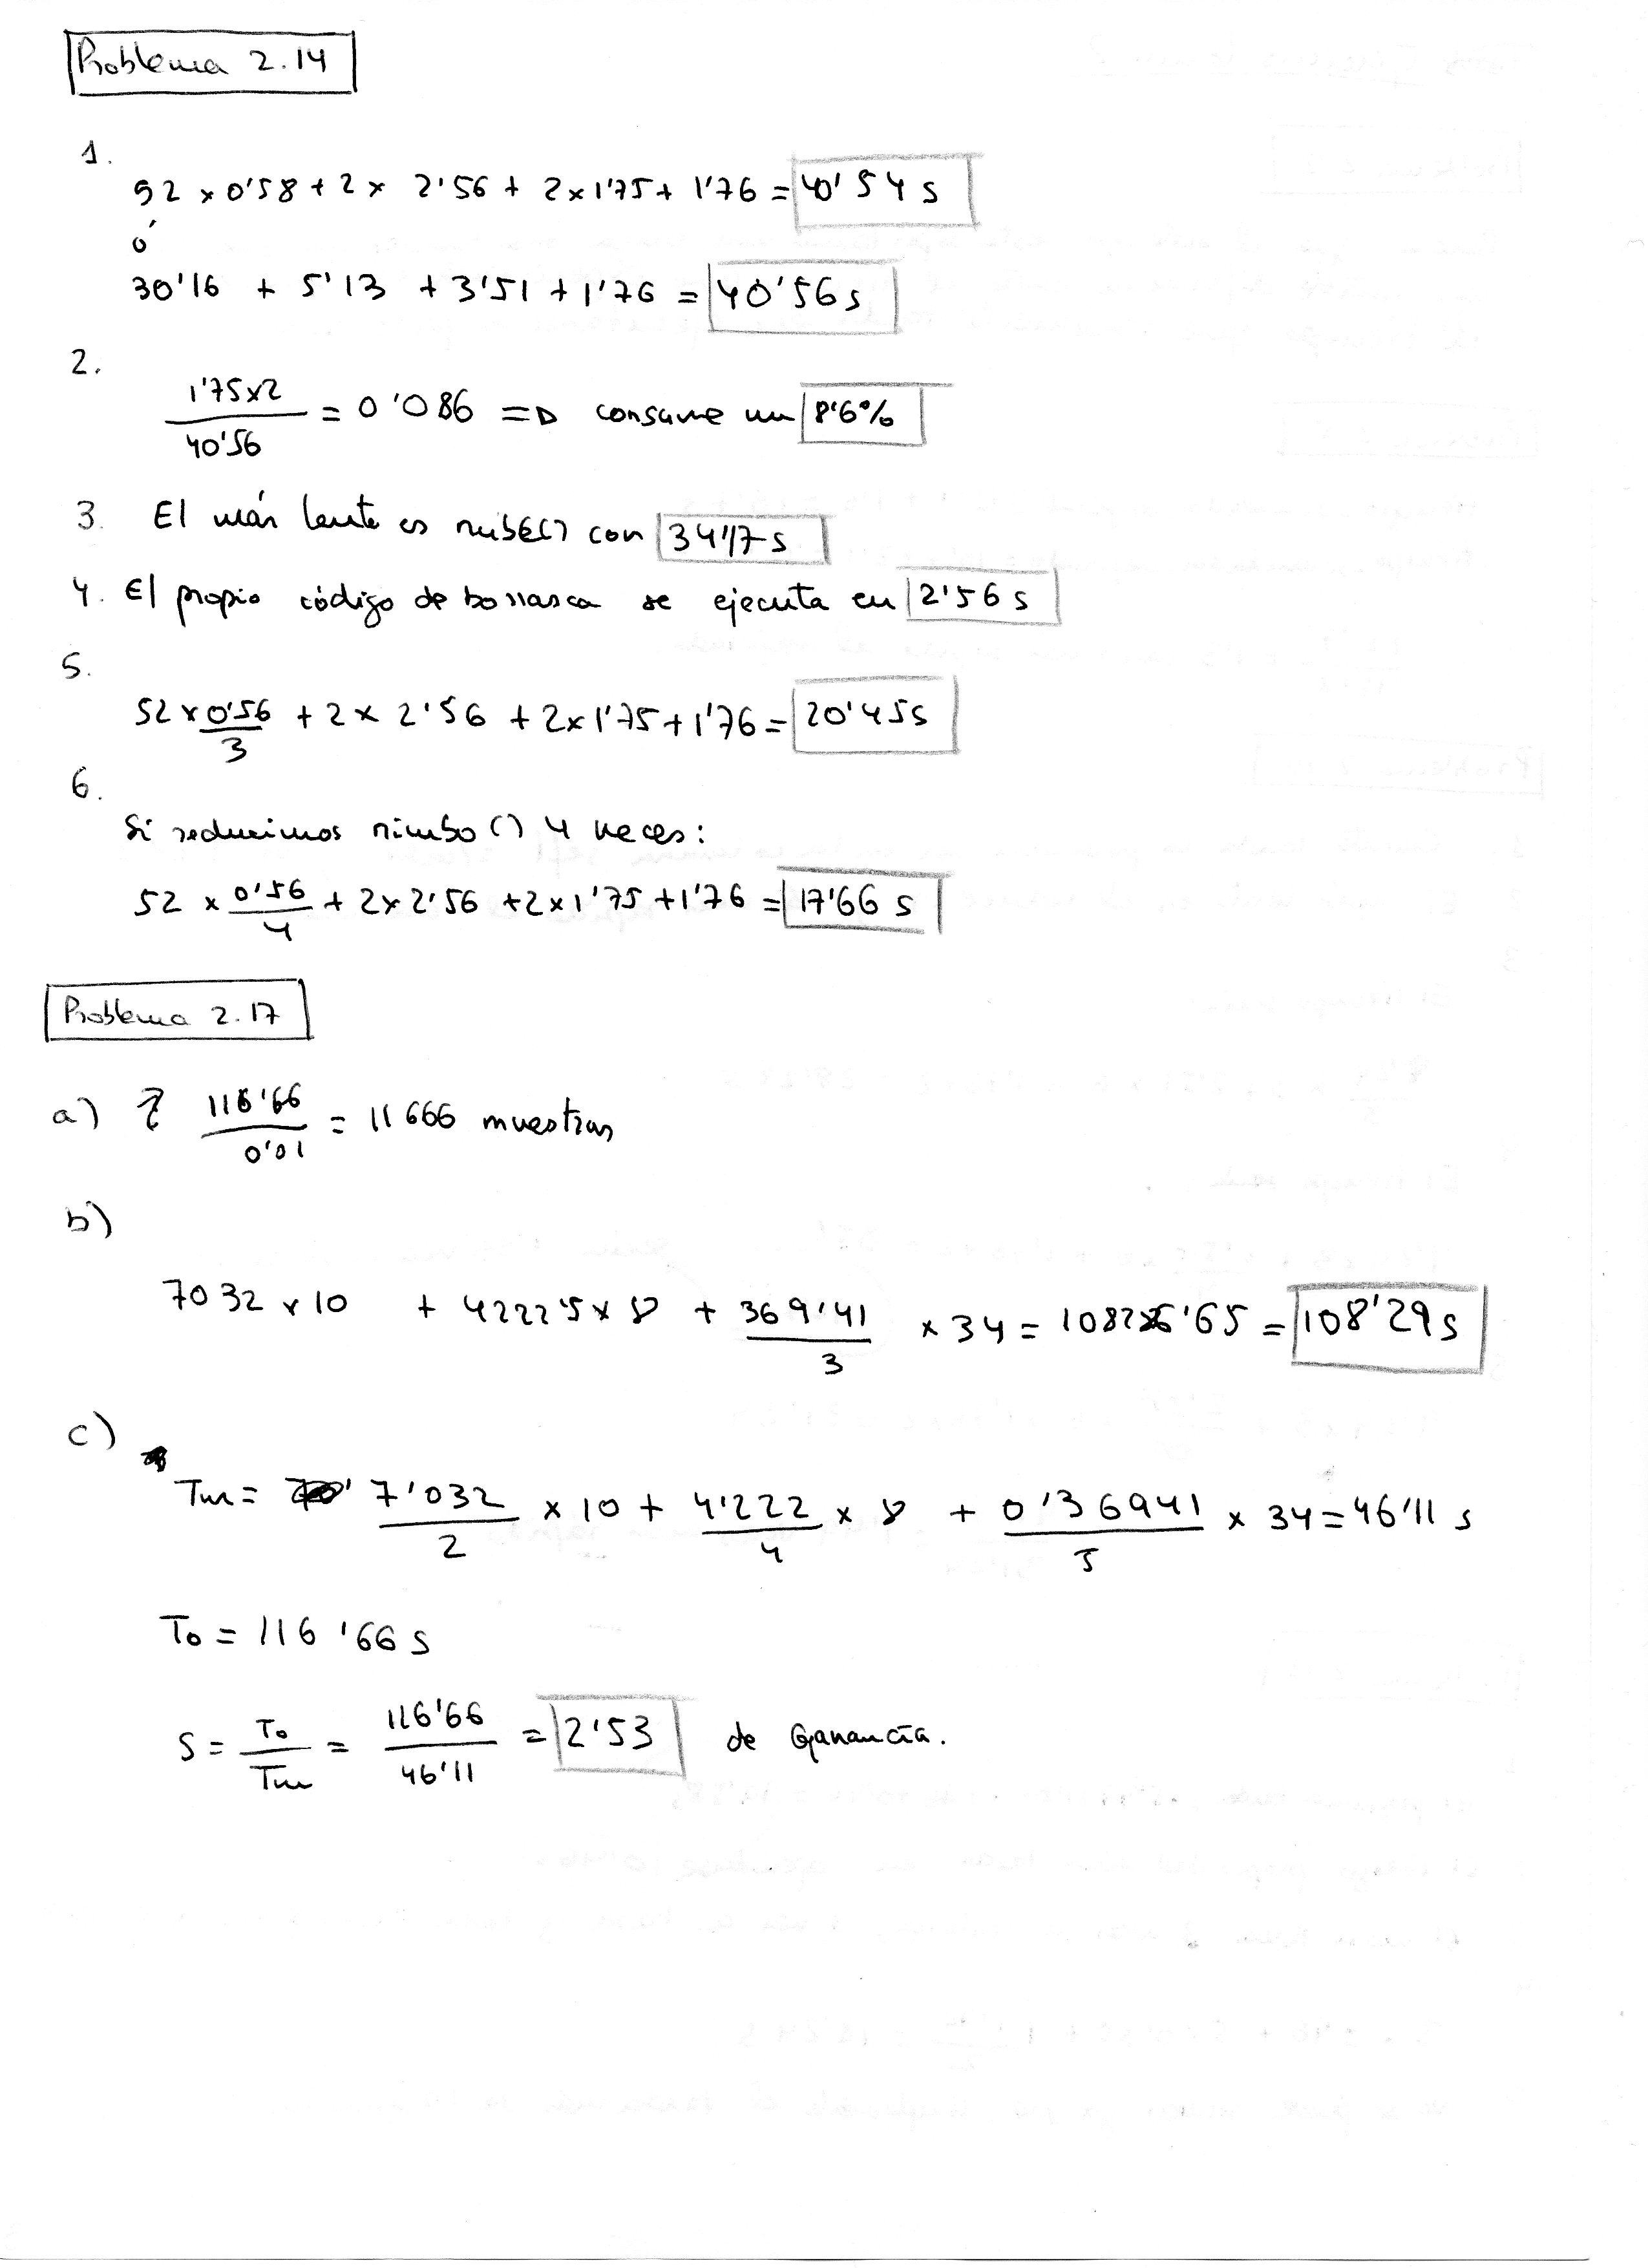 Problema 2.14
1.
52 x 0'58 + 2 x 2'56 + 2 x 1'75 + 1'76 = 40'54 s
ó
30'16 + 5'13 + 3'51 + 1'76 = 40'56 s
2.
1'75x2
= 0'086 => consume un 8'6%
40'56
3. El más lento es con 34'17 s
4. El propio código de borrasca se ejecuta en 2'56 s
5.
52 x 0'56/3 + 2 x 2'56 + 2 x 1'75 + 1'76 = 20'45 s
6.
Si reducimos nimbo () 4 veces:
52 x 0'56/4 + 2 x 2'56 + 2 x 1'75 + 1'76 = 17'66 s
Problema 2.17
a) ? 116'66/0'01 = 11666 muestras
b)
7032 x 10 + 4222'5 x 8 + 369'41/3 x 34 = 108'29 s
c)
Tm = 7'032/2 x 10 + 4'222/4 x 8 + 0'36941/3 x 34 = 46'11 s
To = 116'66 s
S = To/Tm = 116'66/46'11 = 2'53 de Ganancia.